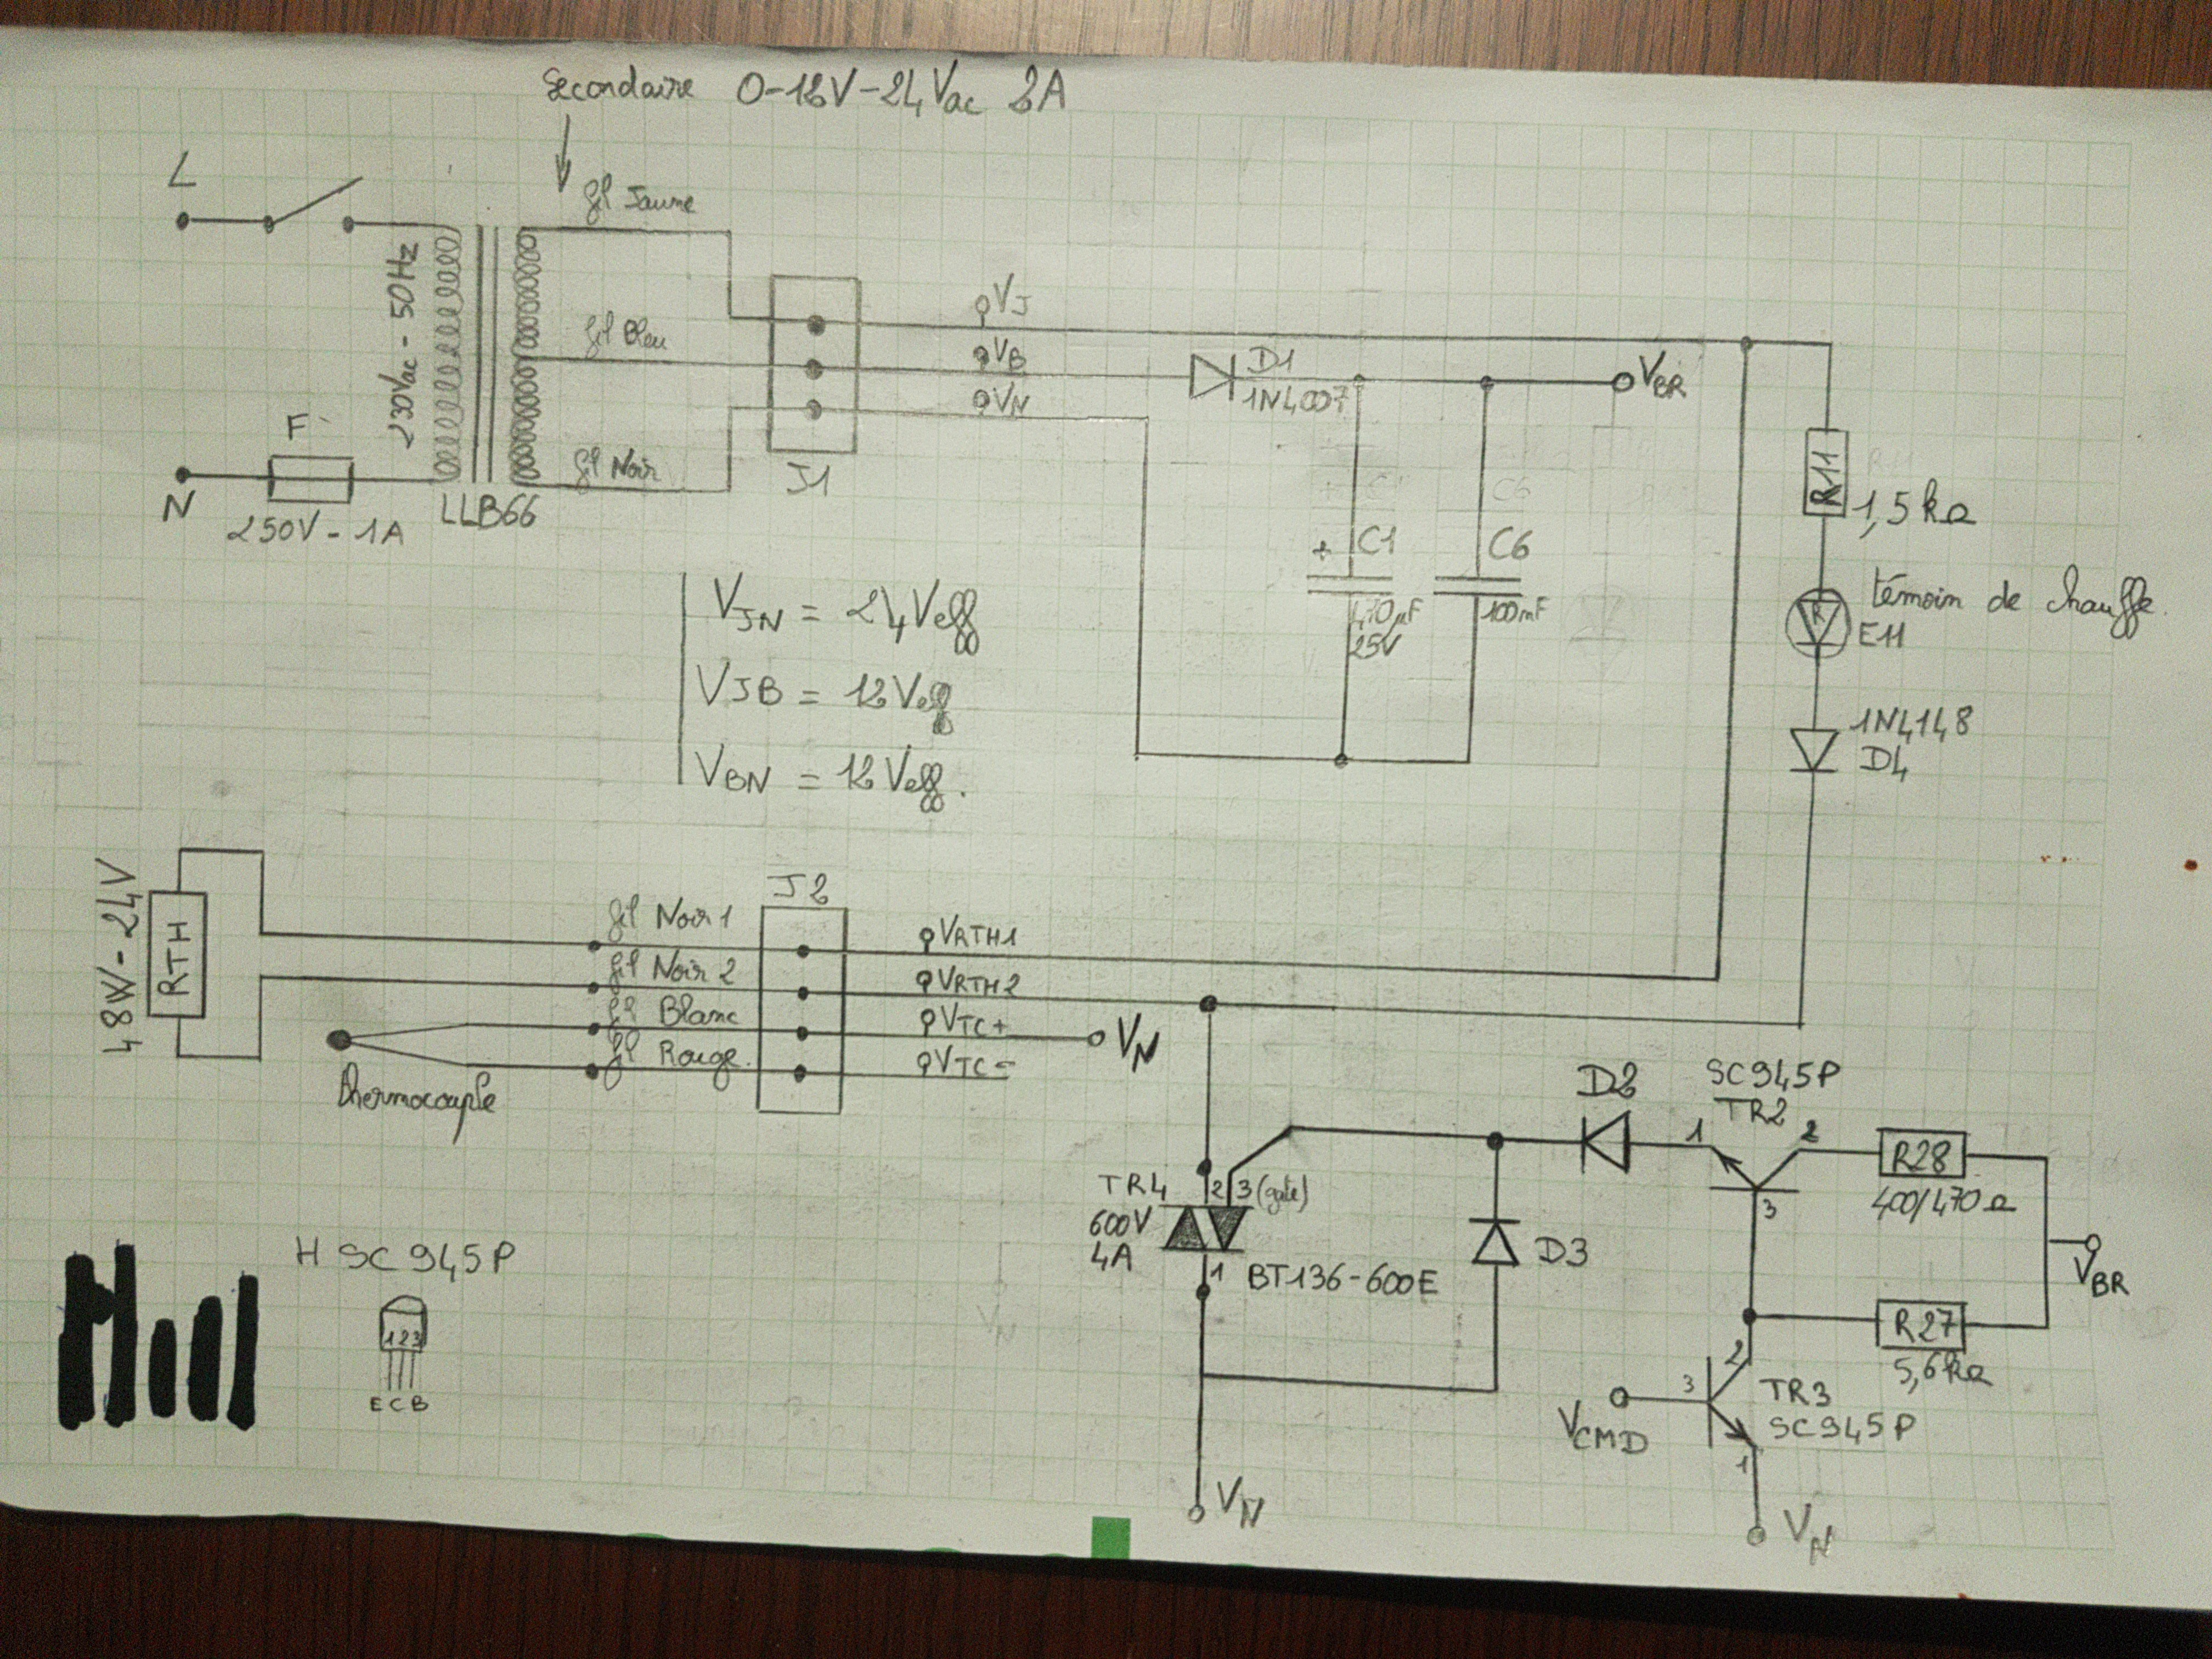 Secondaire 0-12V-24Vac 2A
L
fil Jaune
230Vac - 50Hz
fil Bleu
VJ
VB
VN
D1
1N4007
VBR
F
N
250V - 1A
LLB66
fil Noir
J1
R11
1,5kΩ
+ C1
470µF
25V
C6
100nF
témoin de chauffe.
R
E11
1N4148
D4
VJN = 24Veff
VJB = 12Veff
VBN = 12Veff.
48W - 24V
RTH
J2
fil Noir 1
fil Noir 2
fil Blanc
fil Rouge.
VRTH1
VRTH2
VTC+
VTC-
VN
thermocouple
D2
SC945P
TR2
1
2
3
R28
400/470Ω
VBR
TR4
600V
4A
2
3 (gate)
1
BT136-600E
D3
R27
5,6kΩ
2
3
1
TR3
SC945P
VCMD
VN
VN
H SC945P
123
E C B